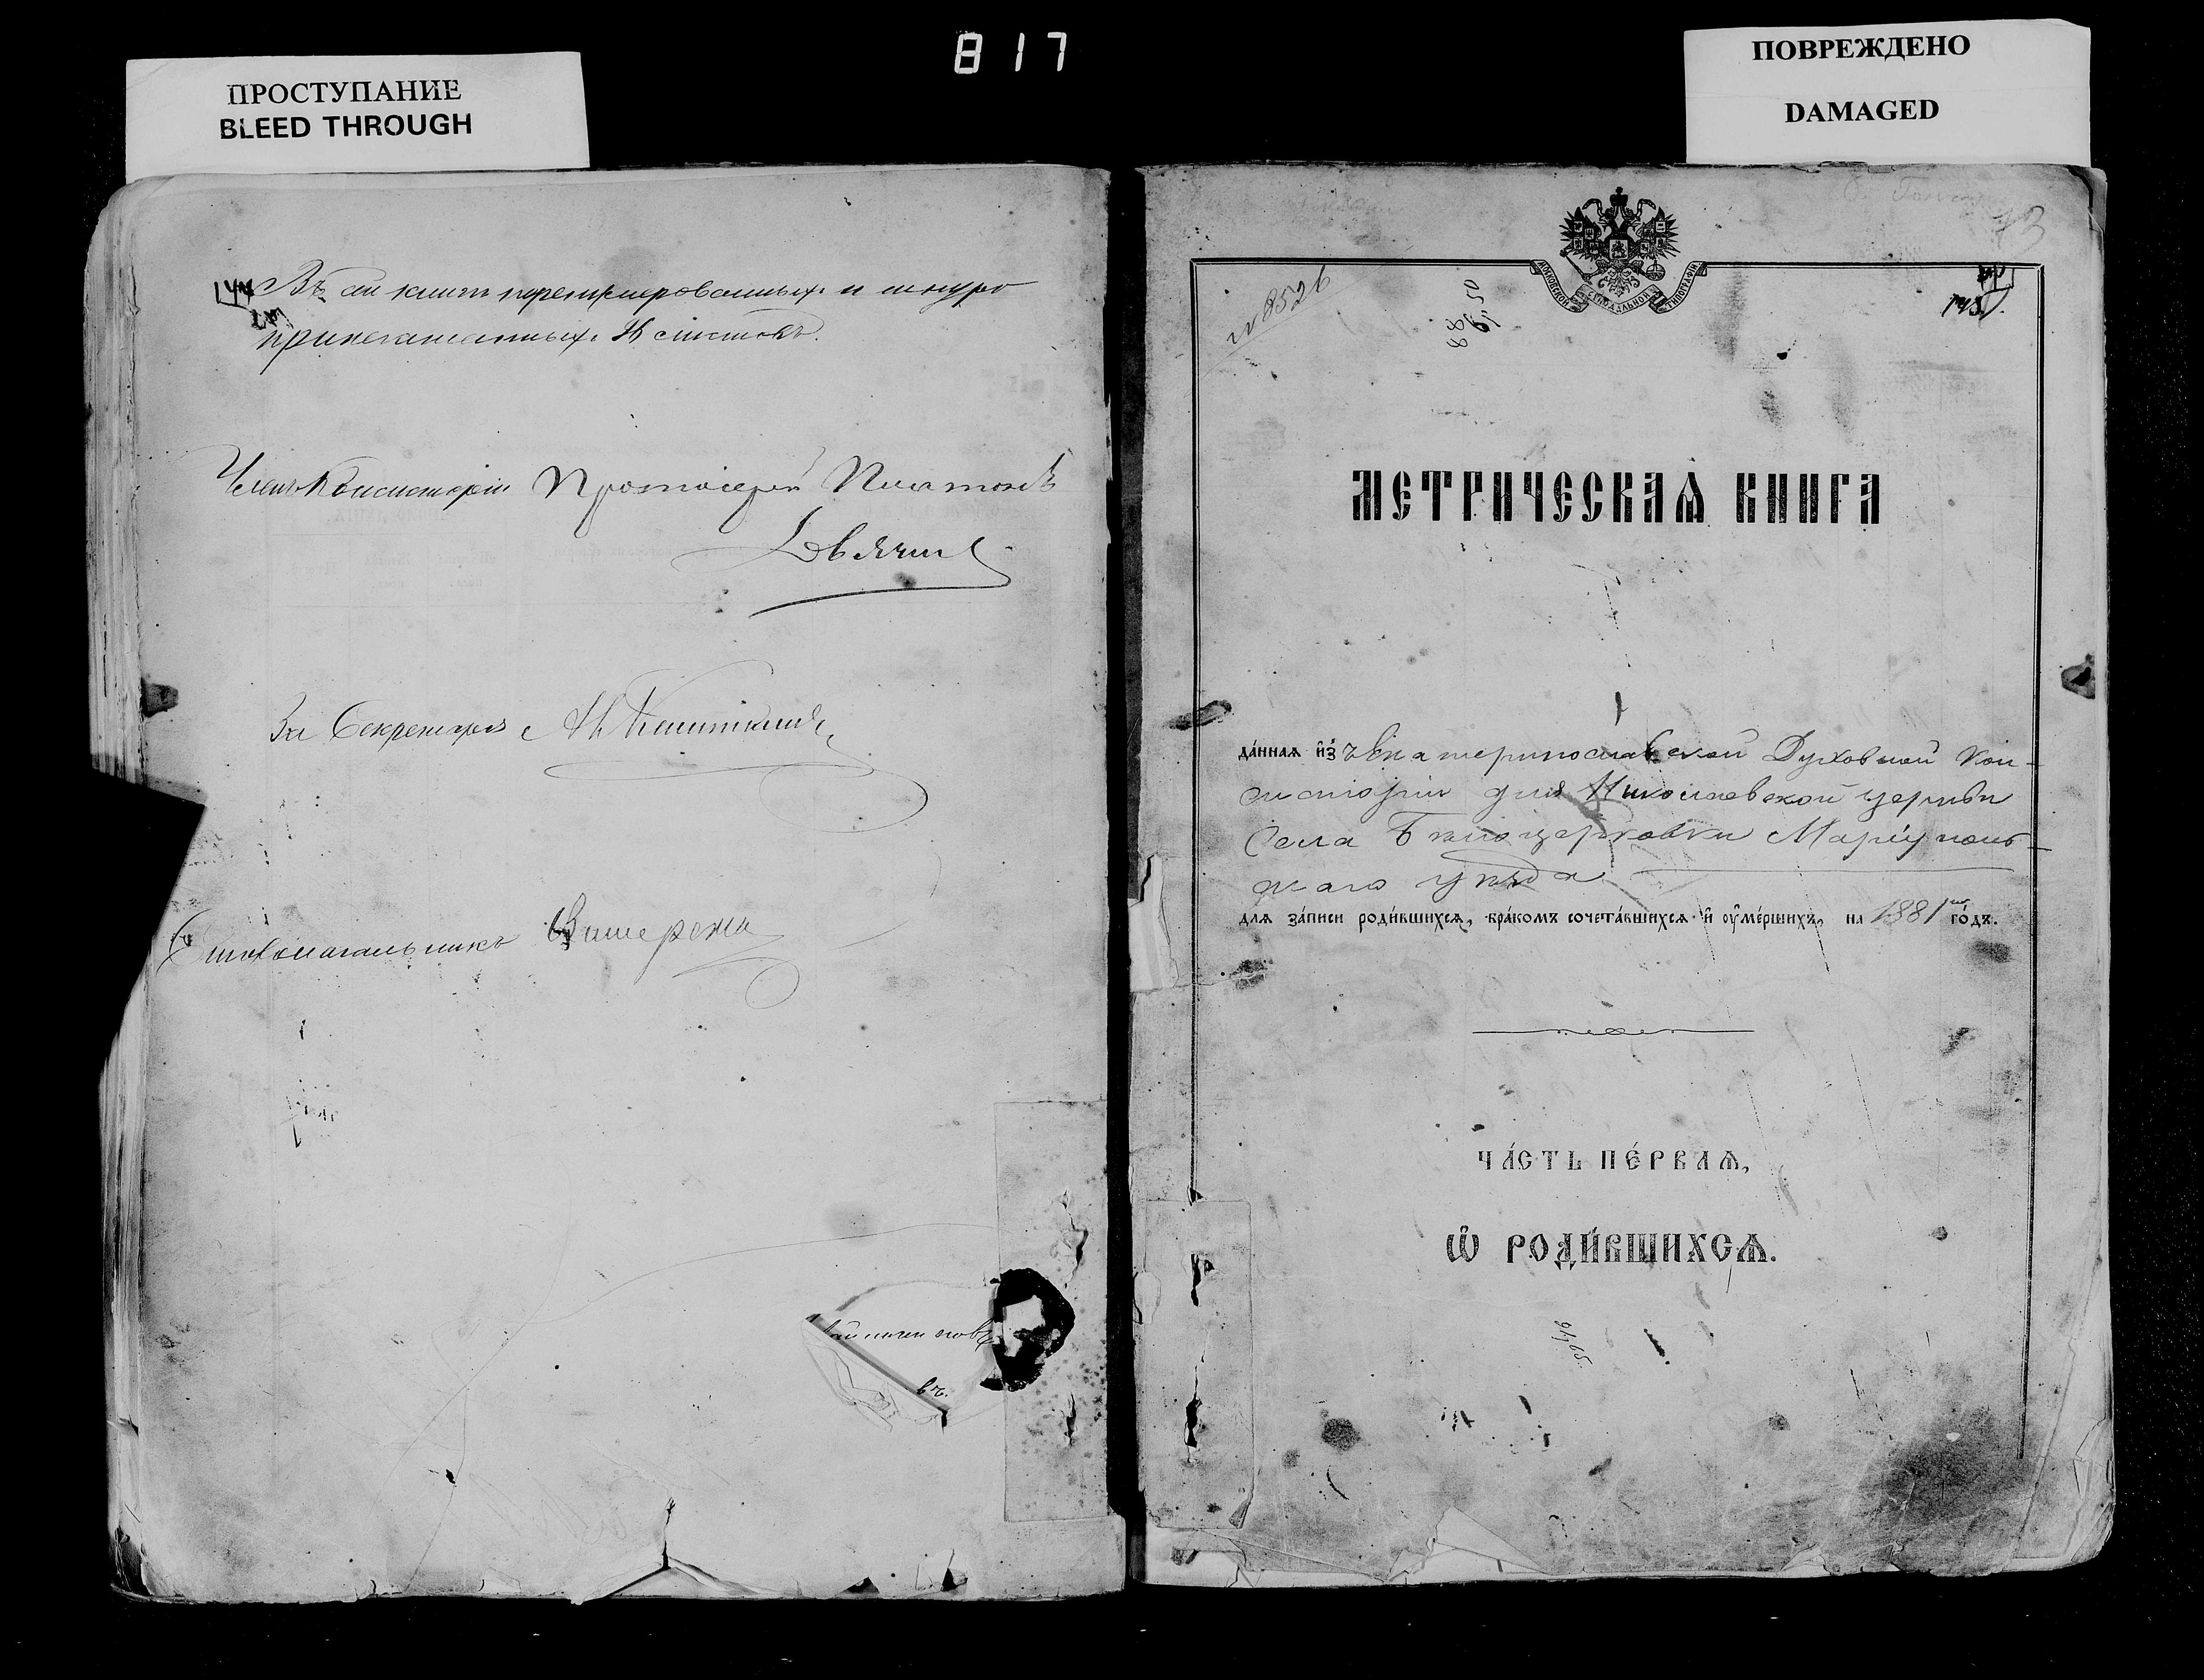 817
ПРОСТУПАНИЕ
BLEED THROUGH
ПОВРЕЖДЕНО
DAMAGED
Въ сей книгѣ перенумерованныхъ и шнуро
припечатанныхъ листовъ.
Членъ Консисторіи Протоіерей Платонъ
За Секретаря
Столоначальникъ
въ.
13
МОСКОВСКОЙ СѴНОДАЛЬНОЙ ТИПОГРАФІИ
№ 8526
МЕТРИЧЕСКАѦ КНИГА
да́нная и҆зъ Екатеринославской Духовной Кон-
систоріи для Николаевской церкви
Села Бѣлоцерковки Маріуполь-
скаго уѣзда
для за́писи роди́вшихсѧ, бра́комъ сочета́вшихсѧ и҆ ᲂу҆ме́ршихъ, на 1881й го́дъ.
ЧА́СТЬ ПЕ́РВАѦ,
Ѡ҆ РОДИ́ВШИХСѦ.